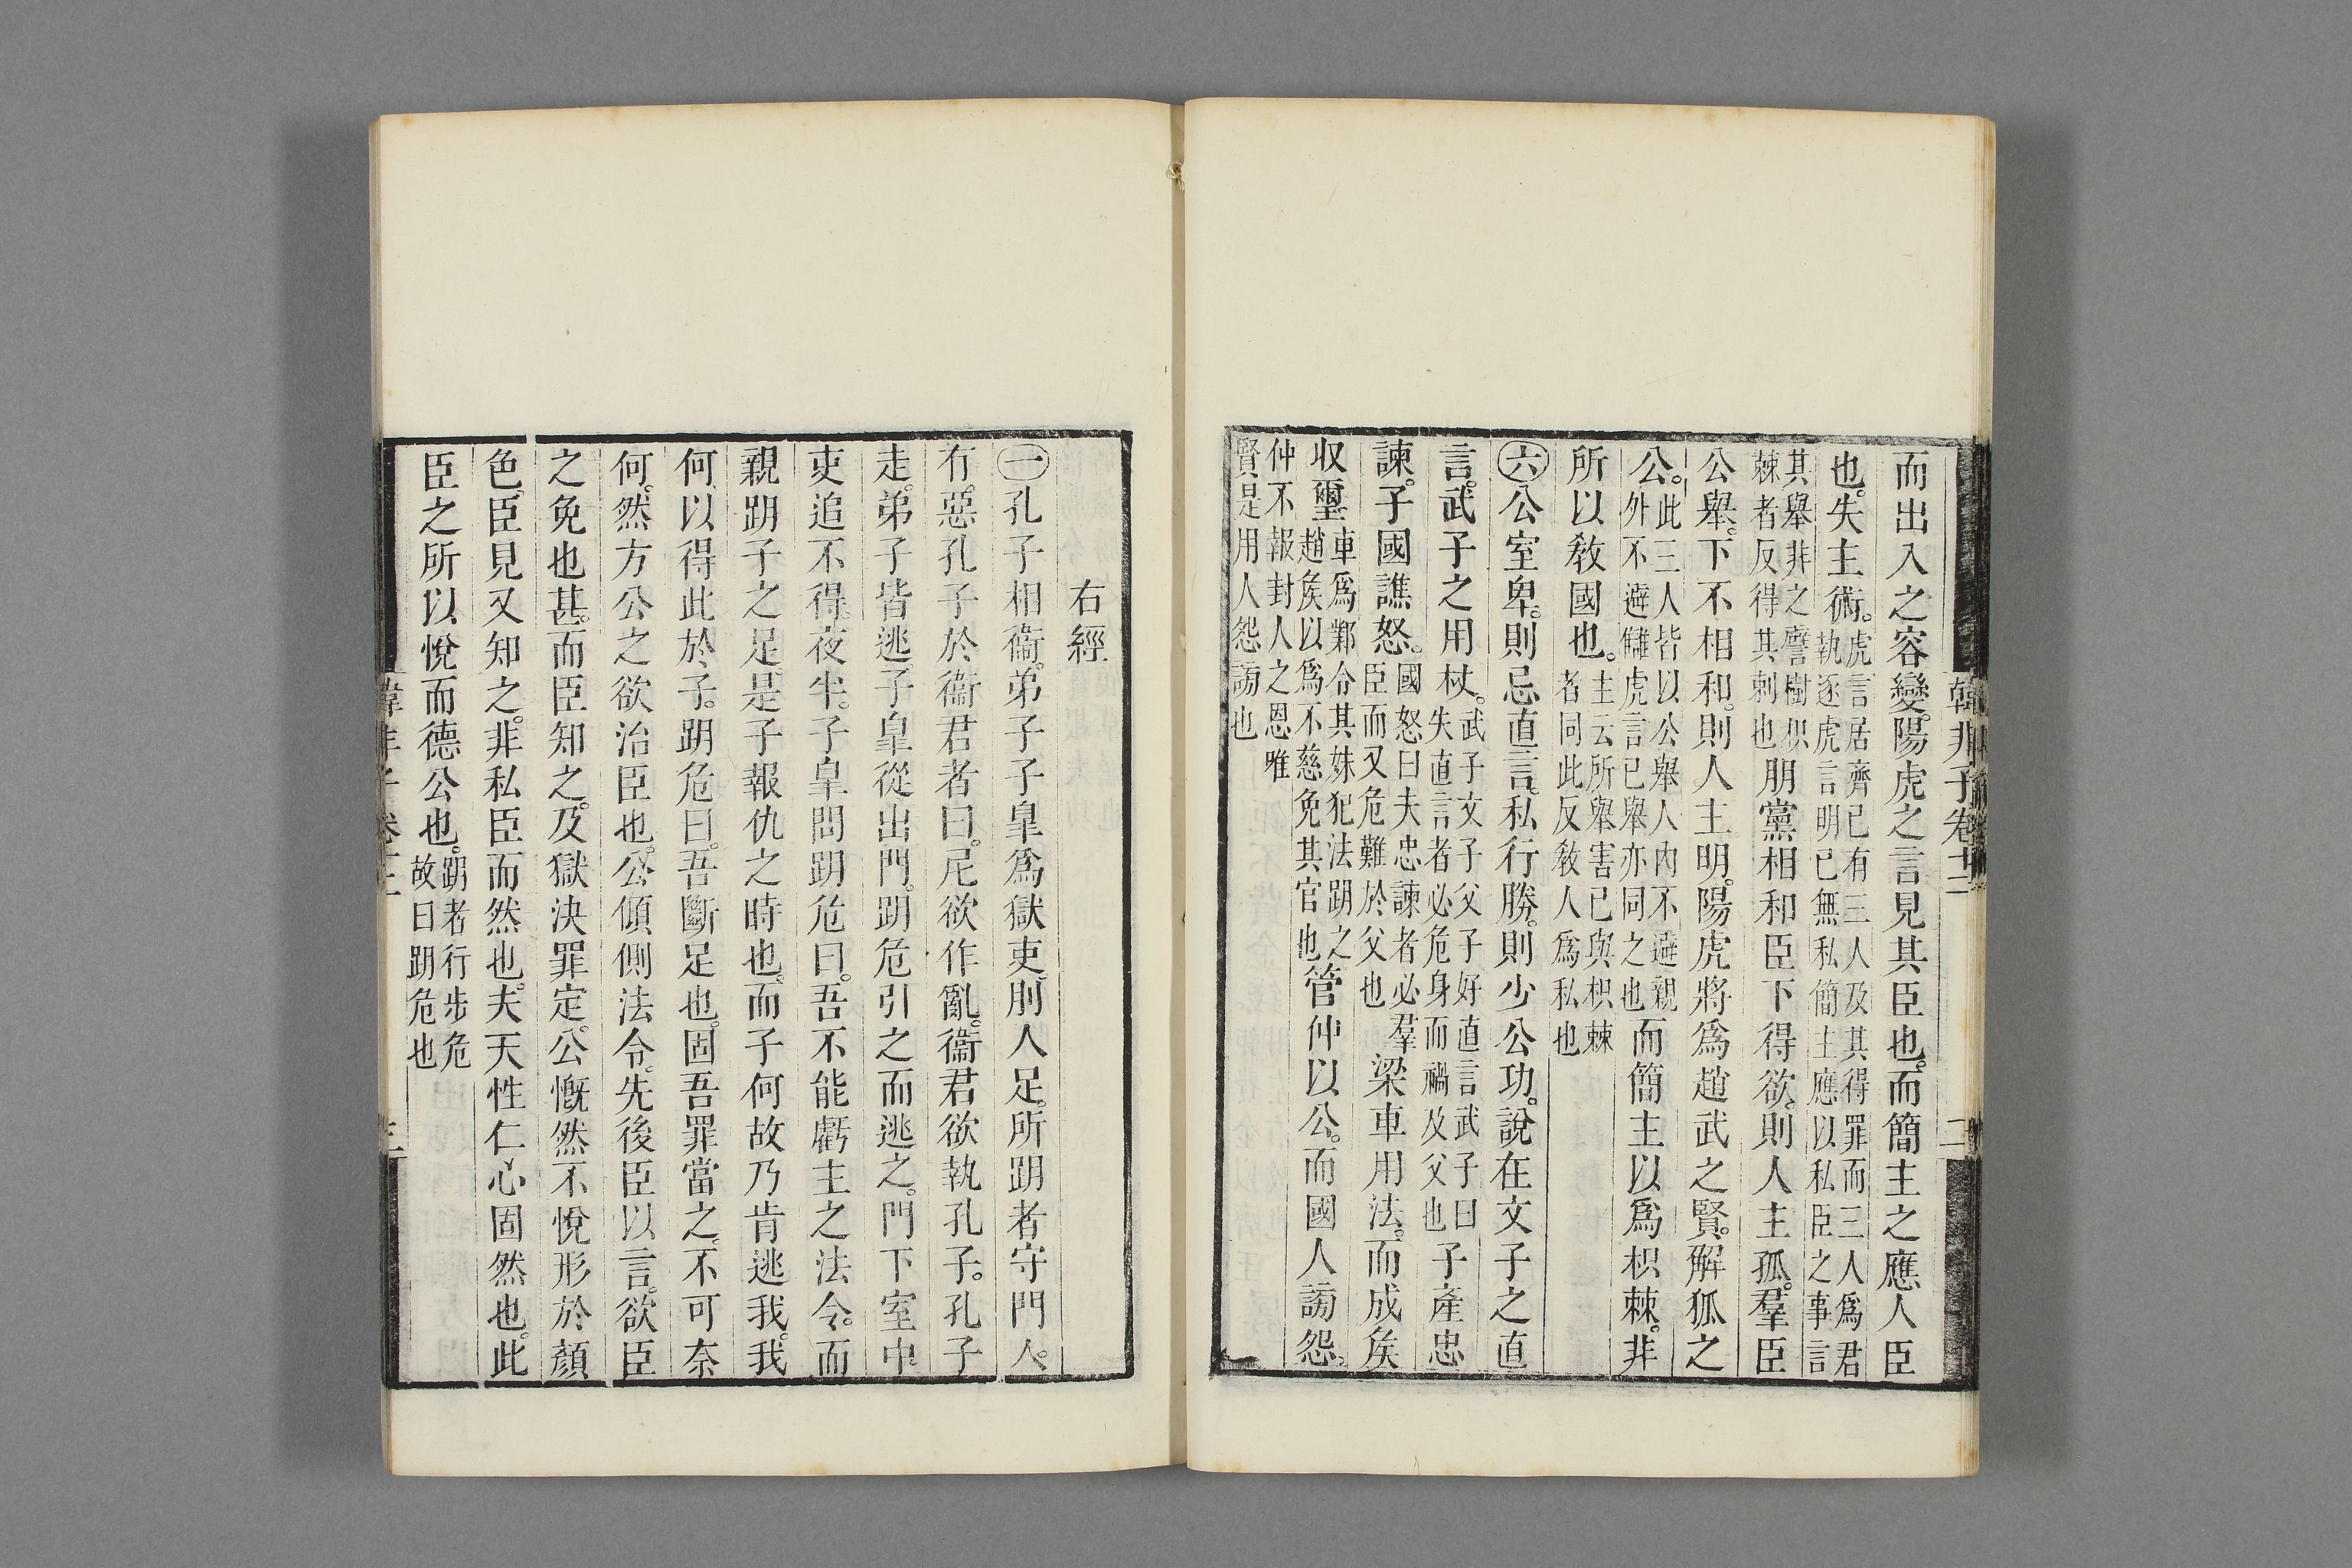 韓非子卷十二
二
而出入之容變陽虎之言見其臣也。而簡主之應人臣
也。失主術。虎言居齊已有三人及其得罪而三人爲君執逐虎言明已無私簡主應以私臣之事言
其舉非之譬樹枳棘者反得其刺也朋黨相和臣下得欲。則人主孤。羣臣
公舉。下不相和。則人主明。陽虎將爲趙武之賢。解狐之
公。此三人皆以公舉人内不避親外不避讎虎言已舉亦同之也而簡主以爲枳棘。非
所以敎國也。主云所舉害已與枳棘者同此反敎人爲私也
㊅公室卑。則忌直言。私行勝。則少公功。說在文子之直
言。武子之用杖。武子文子父子好直言武子曰失直言者必危身而禍及父也子產忠
諫。子國譙怒。國怒曰夫忠諫者必羣臣而又危難於父也梁車用法。而成矦
収璽車爲鄴令其妹犯法跀之趙矦以爲不慈免其官也管仲以公。而國人謗怨。
仲不報封人之恩唯賢是用人怨謗也
右經
㊀孔子相衞。弟子子皐爲獄吏。刖人足。所跀者守門人。
有惡孔子於衞君者曰。尼欲作亂。衞君欲執孔子。孔子
走。弟子皆逃。子皐從出門。跀危引之而逃之。門下室中。
吏追不得。夜半。子皐問跀危曰。吾不能虧主之法令。而
親跀子之足。是子報仇之時也。而子何故乃肯逃我。我
何以得此於子。跀危曰。吾斷足也。固吾罪當之。不可奈
何。然方公之欲治臣也。公傾側法令。先後臣以言。欲臣
之免也甚。而臣知之。及獄決罪定。公慨然不悅形於顏
色。臣見又知之。非私臣而然也。夫天性仁心固然也。此
臣之所以悅而德公也。跀者行步危故曰跀危也